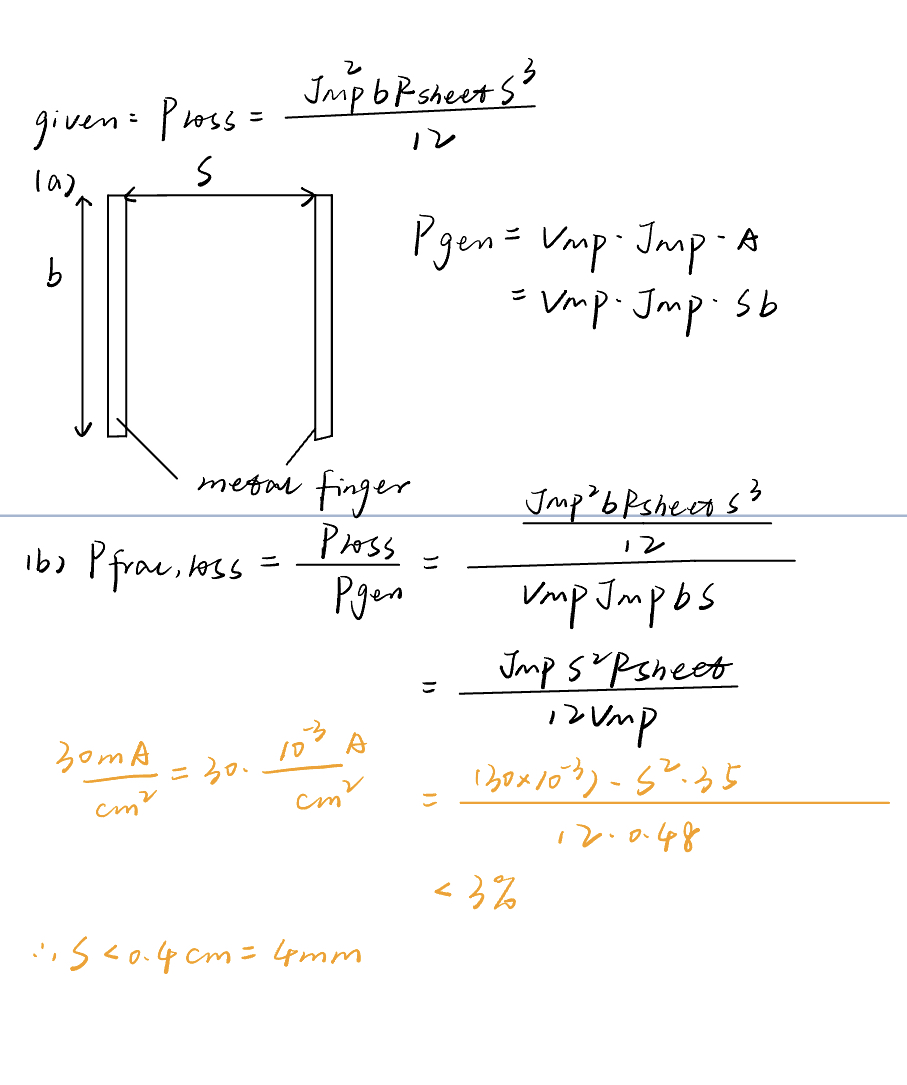 given = Ploss = Jmp² b Rsheet S³ / 12
(a)
S
b
Pgen = Vmp · Jmp · A
= Vmp · Jmp · Sb
metal finger
(b) Pfrac, loss = Ploss / Pgen = (Jmp² b Rsheet S³ / 12) / (Vmp Jmp b S)
= Jmp S² Rsheet / 12 Vmp
30mA / cm² = 30 · 10⁻³ A / cm²
= (30×10⁻³) · S² · 35 / 12 · 0.48
< 3%
∴ S < 0.4 cm = 4mm